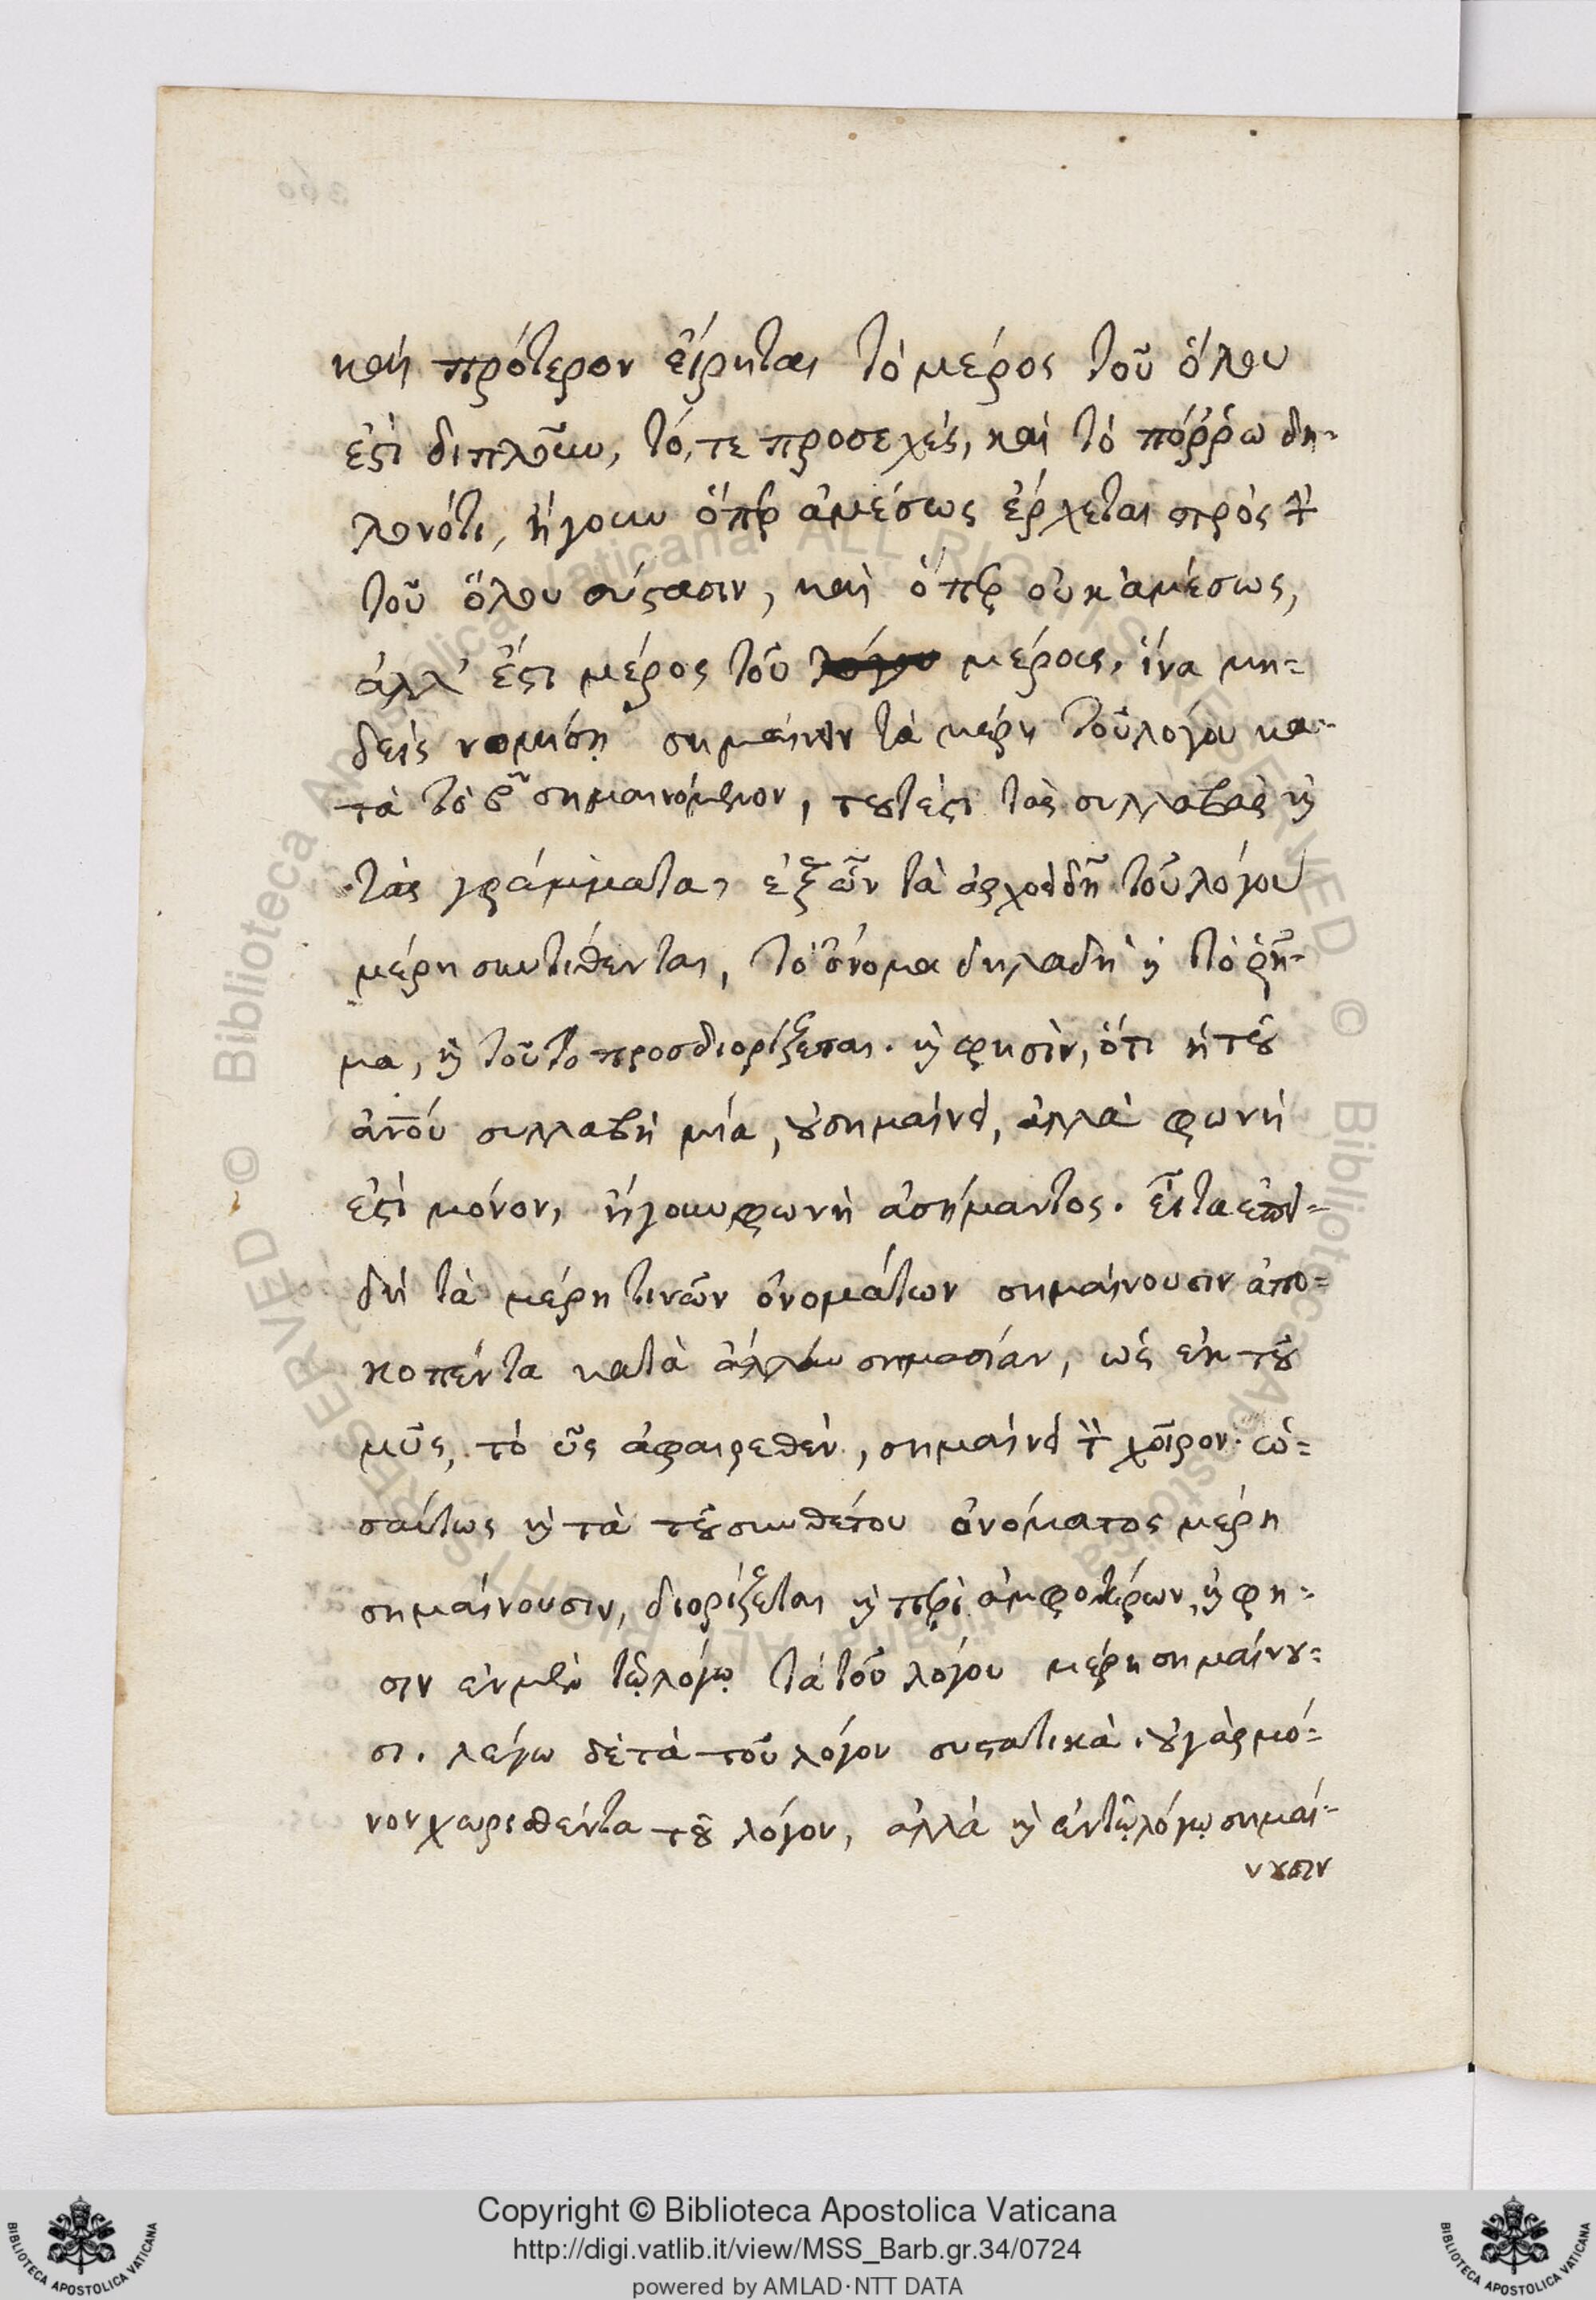 καὶ πρότερον εἴρηται τὸ μέρος τοῦ ὅλου
ἐστὶ διπλοῦν, τό, τε προσεχές, καὶ τὸ πόῤῥω δη-
λονότι, ἤγουν ὅπερ ἀμέσως ἔρχεται πρὸς τὴν
τοῦ ὅλου σύστασιν, καὶ ὅπερ οὐκ ἀμέσως,
ἀλλ' ἔστι μέρος τοῦ λόγου μέρους, ἵνα μη=
δεὶς νομίσῃ σημαίνειν τὰ μέρη τοῦ λόγου κα-
τὰ τὸ βον σημαινόμενον, τουτέστι τὰς συλλαβὰς καὶ
τὰς γράμματα, ἐξ ὧν τὰ ἀρχοειδῆ τοῦ λόγου
μέρη συντίθενται, τὸ ὄνομα δηλαδὴ καὶ τὸ ῥῆ-
μα, καὶ τοῦτο προσδιορίζεται. καὶ φησὶν, ὅτι ἡ τοῦ
ἀνοῦ συλλαβὴ μία, οὐ σημαίνει, ἀλλὰ φωνή
ἐστὶ μόνον, ἤγουν φωνὴ ἀσήμαντος. εἶτα ἐπει=
δὴ τὰ μέρη τινῶν ὀνομάτων σημαίνουσιν ἀπο=
κοπέντα κατὰ ἄλλην σημασίαν, ὡς ἐκ τοῦ
μῦς, τὸ ὗς ἀφαιρεθὲν, σημαίνει τὸν χοῖρον. ὡ=
σαύτως καὶ τὰ τοῦ συνθέτου ὀνόματος μέρη
σημαίνουσιν, διορίζεται καὶ περὶ ἀμφοτέρων, καὶ φη=
σιν ἐν μὲν τῷ λόγῳ τὰ τοῦ λόγου μέρη σημαίνου=
σι. λέγω δὲ τὰ τοῦ λόγου συστατικὰ. οὐ γὰρ μό=
νον χωρισθέντα τοῦ λόγου, ἀλλὰ καὶ ἐν τῷ λόγῳ σημαί-
νουσιν
Copyright © Biblioteca Apostolica Vaticana
http://digi.vatlib.it/view/MSS_Barb.gr.34/0724
powered by AMLAD·NTT DATA